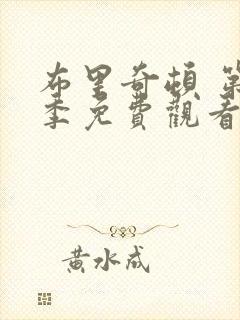 布里奇頓 第
季免費觀看
黃水成